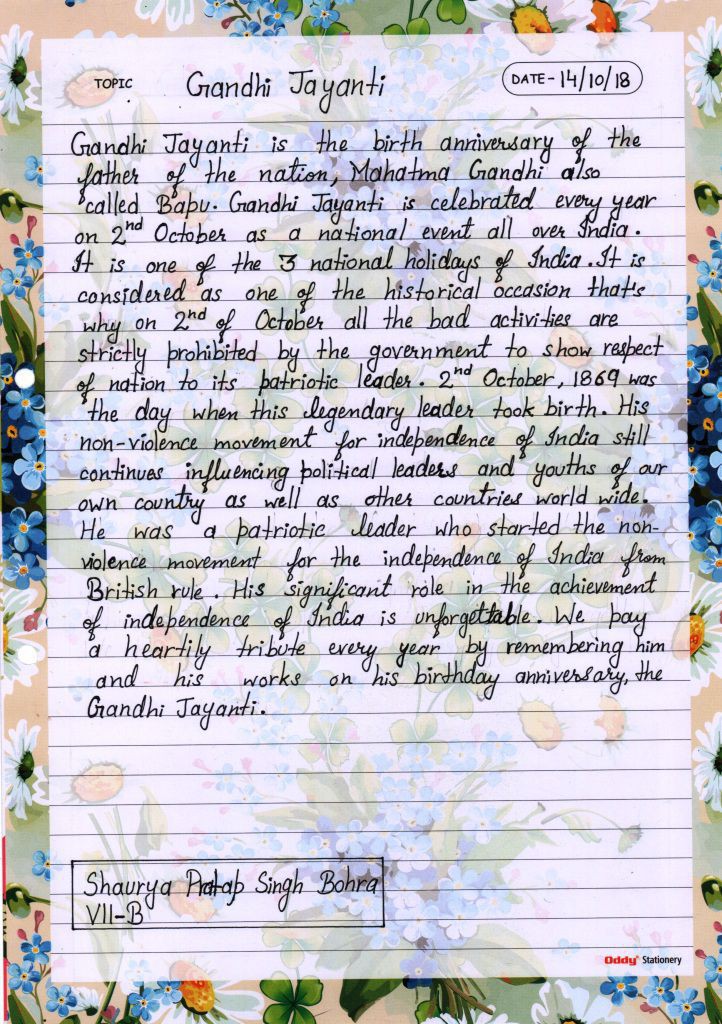 TOPIC Gandhi Jayanti DATE - 14/10/18
Gandhi Jayanti is the birth anniversary of the
father of the nation, Mahatma Gandhi also
called Bapu. Gandhi Jayanti is celebrated every year
on 2nd October as a national event all over India.
It is one of the 3 national holidays of India. It is
considered as one of the historical occasion that's
why on 2nd of October all the bad activities are
strictly prohibited by the government to show respect
of nation to its patriotic leader. 2nd October, 1869 was
the day when this legendary leader took birth. His
non-violence movement for independence of India still
continues influencing political leaders and youths of our
own country as well as other countries world wide.
He was a patriotic leader who started the non-
violence movement for the independence of India from
British rule. His significant role in the achievement
of independence of India is unforgettable. We pay
a heartily tribute every year by remembering him
and his works on his birthday anniversary, the
Gandhi Jayanti.
Shaurya Pratap Singh Bohra
VII-B
Oddy Stationery